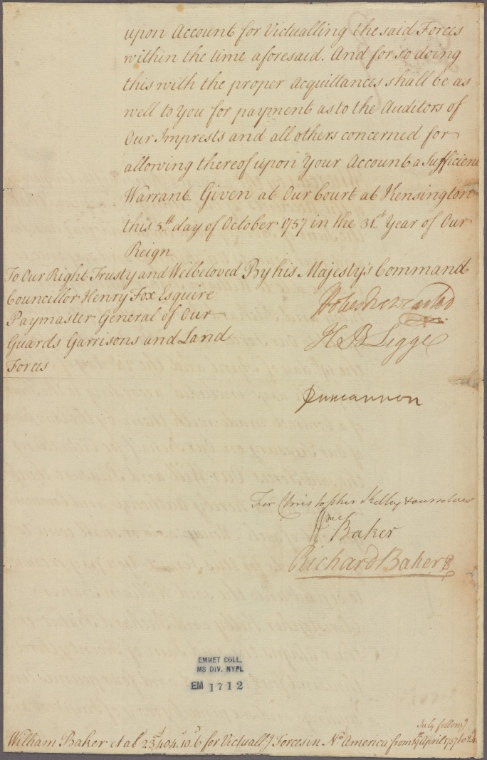 upon Account for Victualling the said Forces
within the time aforesaid. And for so doing
this with the proper Acquittances shall be as
well to You for payment as to the Auditors of
Our Imprests and all others concerned for
allowing thereof upon Your Account a Sufficient
Warrant. Given at Our Court at Kensington
this 5th day of October 1757 in the 31st Year of Our
Reign
To Our Right Trusty and Welbeloved By his Majesty's Command
Councillor Henry Fox Esquire
Paymaster General of Our
Guards Garrisons and Land
Forces
Holles Newcastle
H B Legge
Duncannon
For Christopher Kilby & ourselves
Wm Baker
Richard Baker
EMMET COLL.
MS DIV. NYPL
EM 1712
July follows
William Baker et al for Victualls Forces in No America from April 1757 to 24